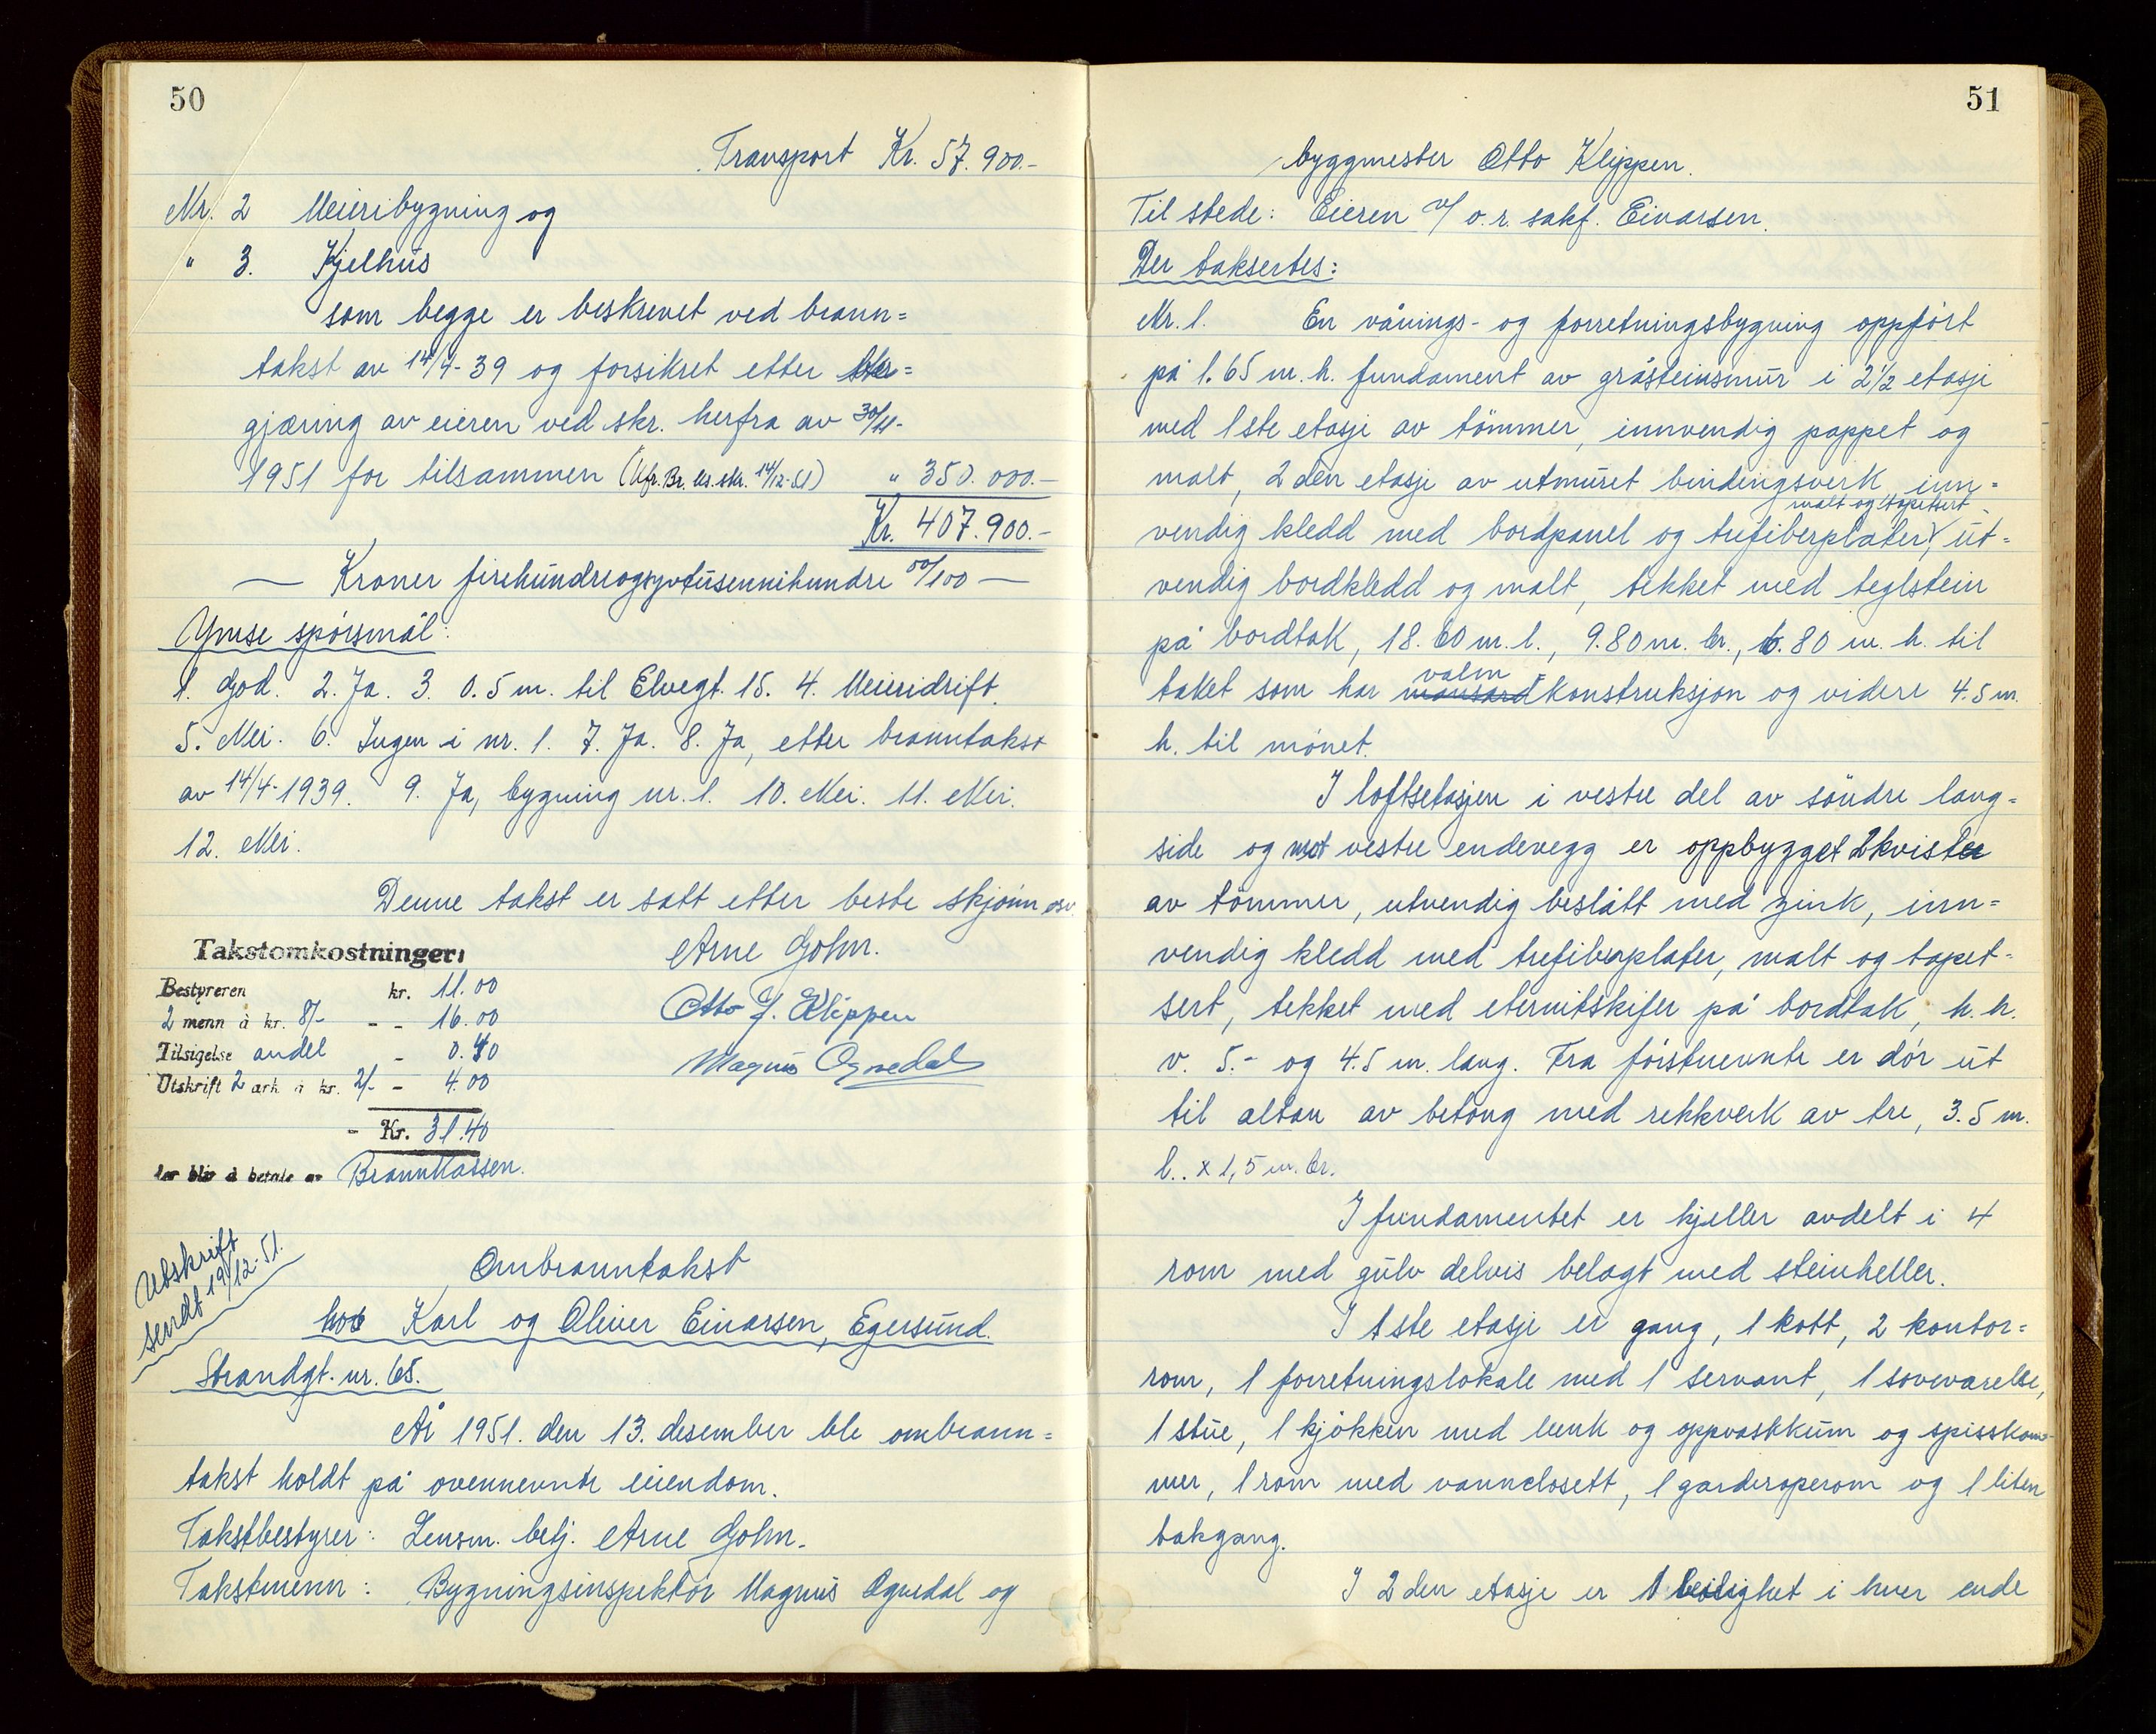 50
Transport Kr. 57.900.-
Nr. 2 Meieribygning og
" 3. Kjelhus
som begge er beskrevet ved brann=
takst av 14/4-39 og forsikret etter be=
gjæring av eieren ved skr. herfra av 30/11-
1951 for tilsammen (Jfr. Br. ks. skr. 14/12-51) " 350.000.-
Kr. 407.900.-
— Kroner firehundreogsyvtusennihundre 00/100 —
Ymse spörsmål:
1. God. 2. Ja. 3. 0.5 m. til Elvegt. 15. 4. Meieridrift.
5. Nei. 6. Ingen i nr. 1. 7. Ja. 8. Ja, etter branntakst
av 14/4-1939. 9. Ja, bygning nr. 1. 10. Nei. 11. Nei.
12. Nei.
Denne takst er satt etter beste skjönn osv.
Takstomkostninger:
Arne Gohn.
Bestyreren kr. 11.00
Otto J. Klippen
2 menn à kr. 8/- - - 16.00
Tilsigelse andel - 0.40
Magnus Ognedal
Utskrift 2 ark à kr. 2/- - 4.00
- Kr. 31.40
som blir å betale av Brannkassen.
Utskrift
sendt 19/12-51.
Ombranntakst
hos Karl og Oliver Einarsen, Egersund.
Strandgt. nr. 65.
År 1951. den 13. desember ble ombrann=
takst holdt på ovennevnte eiendom.
Takstbestyrer: Lensm. betj. Arne Gohn.
Takstmenn: Bygningsinspektör Magnus Ognedal og
51
byggmester Otto Klippen.
Til stede: Eieren v/ o.r. sakf. Einarsen.
Der taksertes:
Nr. 1. En vånings- og forretningsbygning oppfört
på 1.65 m. h. fundament av gråsteinsmur i 2 1/2 etasje
med 1ste etasje av tömmer, innvendig pappet og
malt, 2den etasje av utmuret bindingsverk, inn=
malt og tapetsert
vendig kledd med bordpanel og trefiberplater, ut=
vendig bordkledd og malt, tekket med teglstein
på bordtak, 18.60 m. l., 9.80 m. br., 6.80 m. h. til
valm
taket som har mansard konstruksjon og videre 4.5 m.
h. til mönet.
I loftsetasjen i vestre del av söndre lang=
side og mot vestre endevegg er oppbygget 2 kvister
av tömmer, utvendig beslått med zink, inn=
vendig kledd med trefiberplater, malt og tapet-
sert, tekket med eternitskifer på bordtak, h. h.
v. 5.- og 4.5 m. lang. Fra förstnevnte er dör ut
til altan av betong med rekkverk av tre, 3.5 m.
l. x 1,5 m. br.
I fundamentet er kjeller avdelt i 4
rom med gulv delvis belagt med steinheller.
I 1ste etasje er gang, 1 kott, 2 kontor=
rom, 1 forretningslokale med 1 servant, 1 soveværelse,
1 stue, 1 kjökken med benk og oppvaskkum og spisskam-
mer, 1 rom med vannclosett, 1 garderoperom og 1 liten
bakgang.
I 2den etasje er 1 leilighet i hver ende